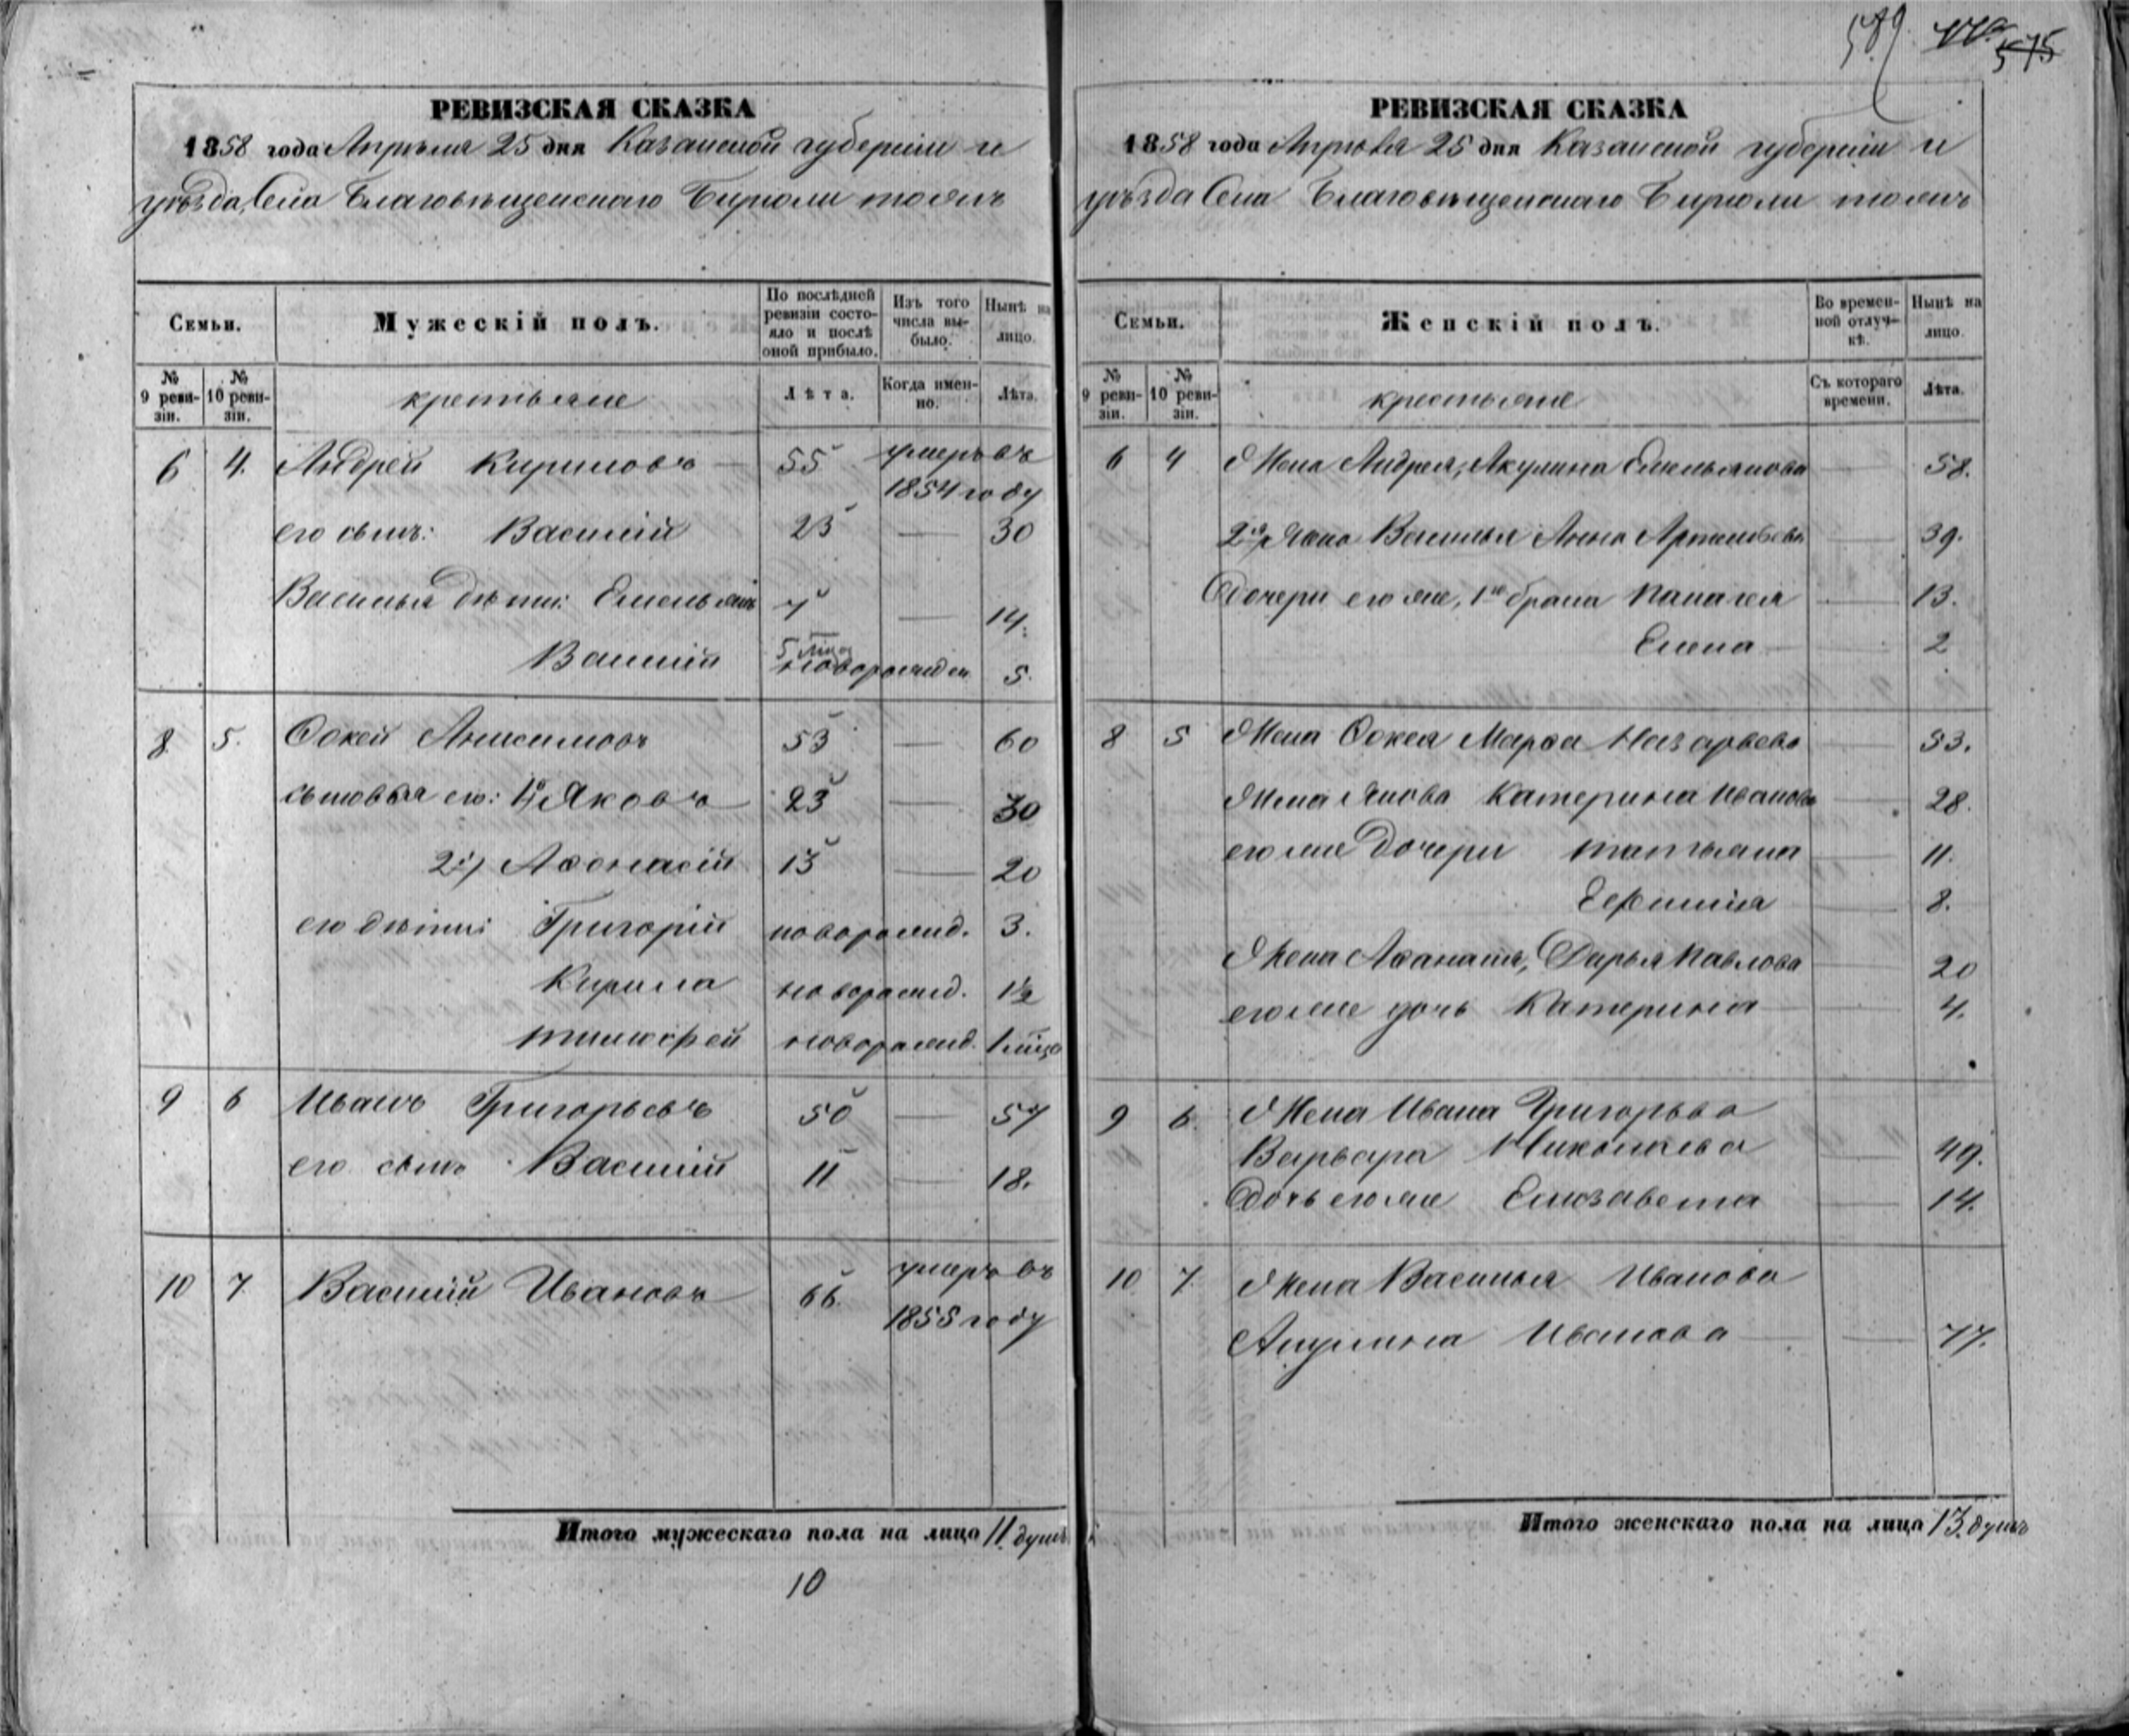 589. 575
РЕВИЗСКАЯ СКАЗКА
1858 года Апрѣля 25 дня Казанской губерніи и
уѣзда, Села Благовѣщенскаго Бирюли тожъ
Семьи.
Мужескій полъ.
По послѣдней ревизіи состояло и послѣ оной прибыло.
Изъ того числа выбыло.
Нынѣ на лицо.
№ 9 ревизіи.
№ 10 ревизіи.
крестьяне
Лѣта.
Когда именно.
Лѣта.
6 4. Андрей Кириловъ 55 умеръ въ
1854 году
его сынъ: Василій 23 — 30
Василья дѣти: Емельянъ 7 — 14.
Василій 5 новорожден 5.
8 5. Фокей Анисимовъ 53 — 60
сыновья его: 1й Яковъ 23 — 30
2й Афонасій 13 — 20
его дѣти: Григорій новорожд. 3.
Кирила новорожд. 1½
Тимофей новорожд. 1 мѣсц
9 6 Иванъ Григорьевъ 50 — 57
его сынъ Василій 11 — 18.
10 7 Василій Ивановъ 66. умеръ въ
1855 году
Итого мужескаго пола на лицо 11. душъ
10
РЕВИЗСКАЯ СКАЗКА
1858 года Апрѣля 25 дня Казанской губерніи и
уѣзда Села Благовѣщенскаго Бирюли тожъ
Семьи.
Женскій полъ.
Во временной отлучкѣ.
Нынѣ на лицо.
№ 9 ревизіи.
№ 10 ревизіи.
крестьяне
Съ котораго времени.
Лѣта.
6 4 Жена Андрея, Акулина Емельянова — 58.
2я Жена Василья Анна Артемьева — 39.
Дочери его же, 1го брака Палагея — 13.
Елена — 2
8 5 Жена Фокея Марфа Назарьева — 53.
Жена Якова Катерина Иванова — 28.
его же Дочери Татьяна — 11.
Ефимия — 8.
Жена Афанасья, Дарья Павлова — 20
его же дочь Катерина — 4.
9 6. Жена Ивана Григорьева
Варвара Николаева — 49.
Дочь его же Елизавета — 14.
10 7. Жена Василья Иванова
Акулина Иванова — 77.
Итого женскаго пола на лицо 13. душъ